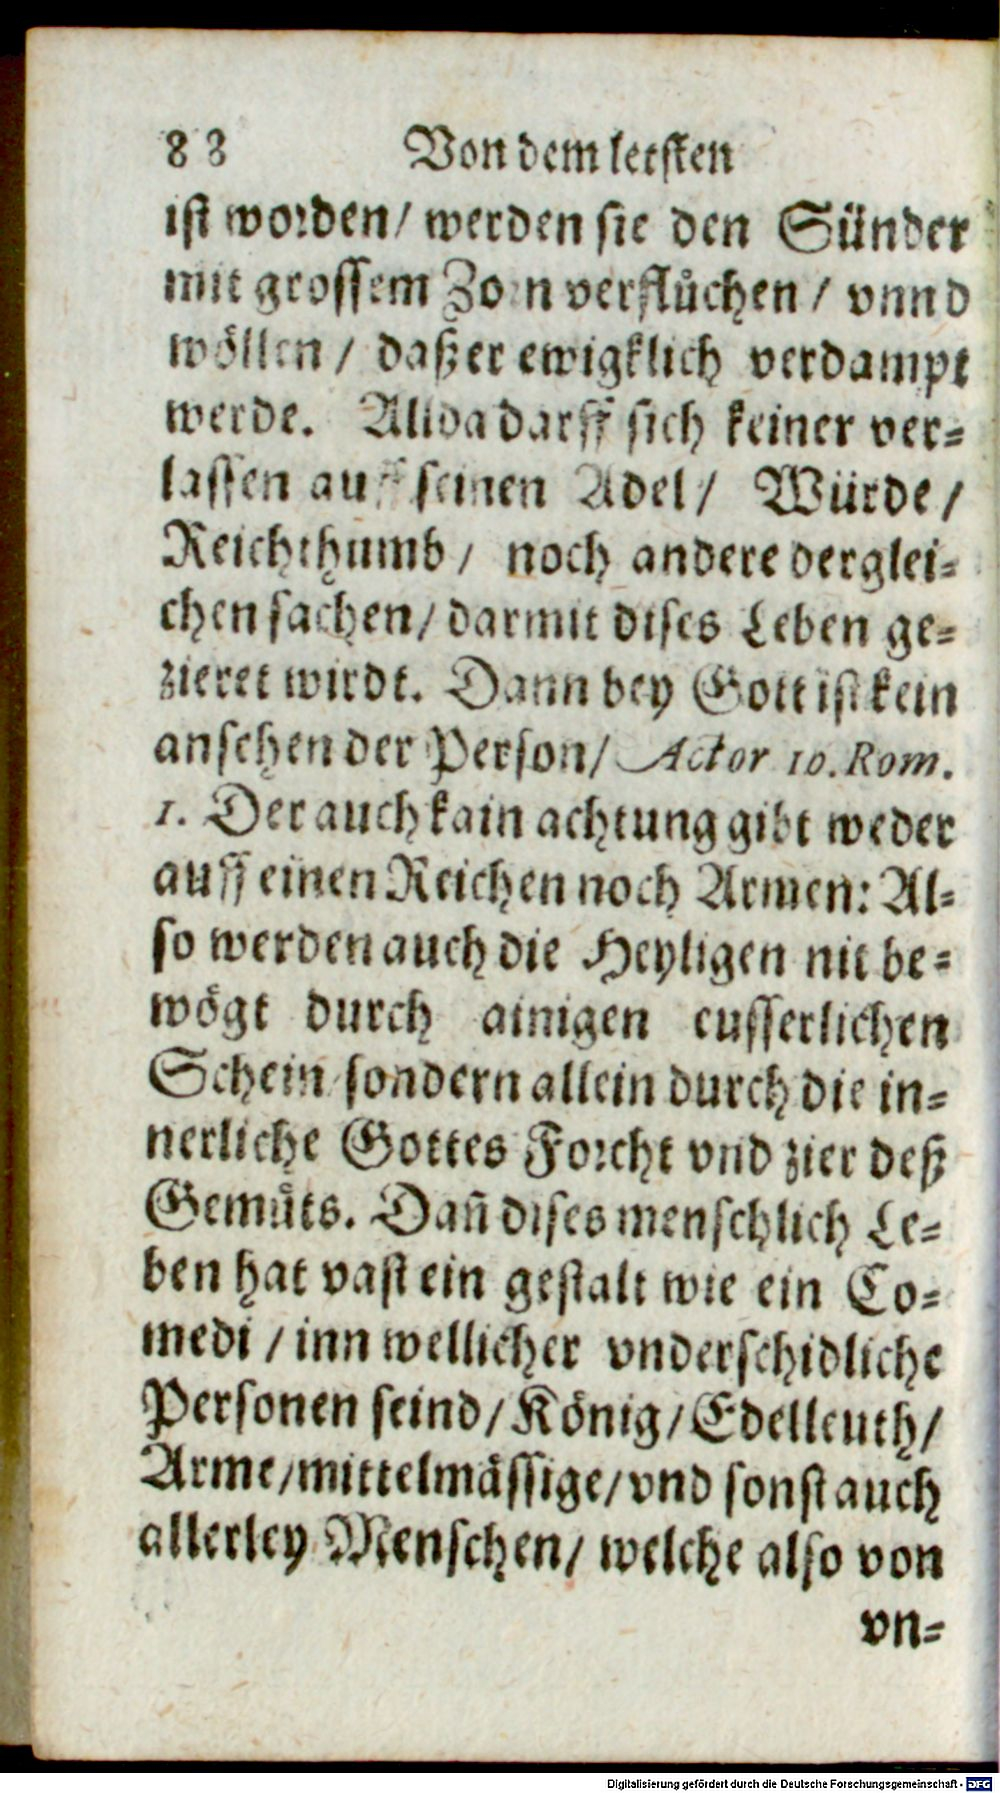 88 Von dem letsten
ist worden/ werden sie den Sünder
mit grossem Zorn verflůchen / vnnd
wöllen / daß er ewigklich verdampt
werde. Allda darff sich keiner ver=
lassen auff seinen Adel / Würde /
Reichthumb / noch andere derglei=
chen sachen / darmit dises Leben ge=
zieret wirdt. Dann bey Gott ist kein
ansehen der Person / Actor 10. Rom.
1. Der auch kain achtung gibt weder
auff einen Reichen noch Armen: Al=
so werden auch die Heyligen nit be=
wögt durch ainigen eusserlichen
Schein sondern allein durch die in=
nerliche Gottes Forcht vnd zier deß
Gemůts. Dañ dises menschlich Le=
ben hat vast ein gestalt wie ein Co=
medi / inn wellicher vnderschidliche
Personen seind / König / Edelleuth /
Arme / mittelmässige / vnd sonst auch
allerley Menschen / welche also von
vn=
Digitalisierung gefördert durch die Deutsche Forschungsgemeinschaft - DFG